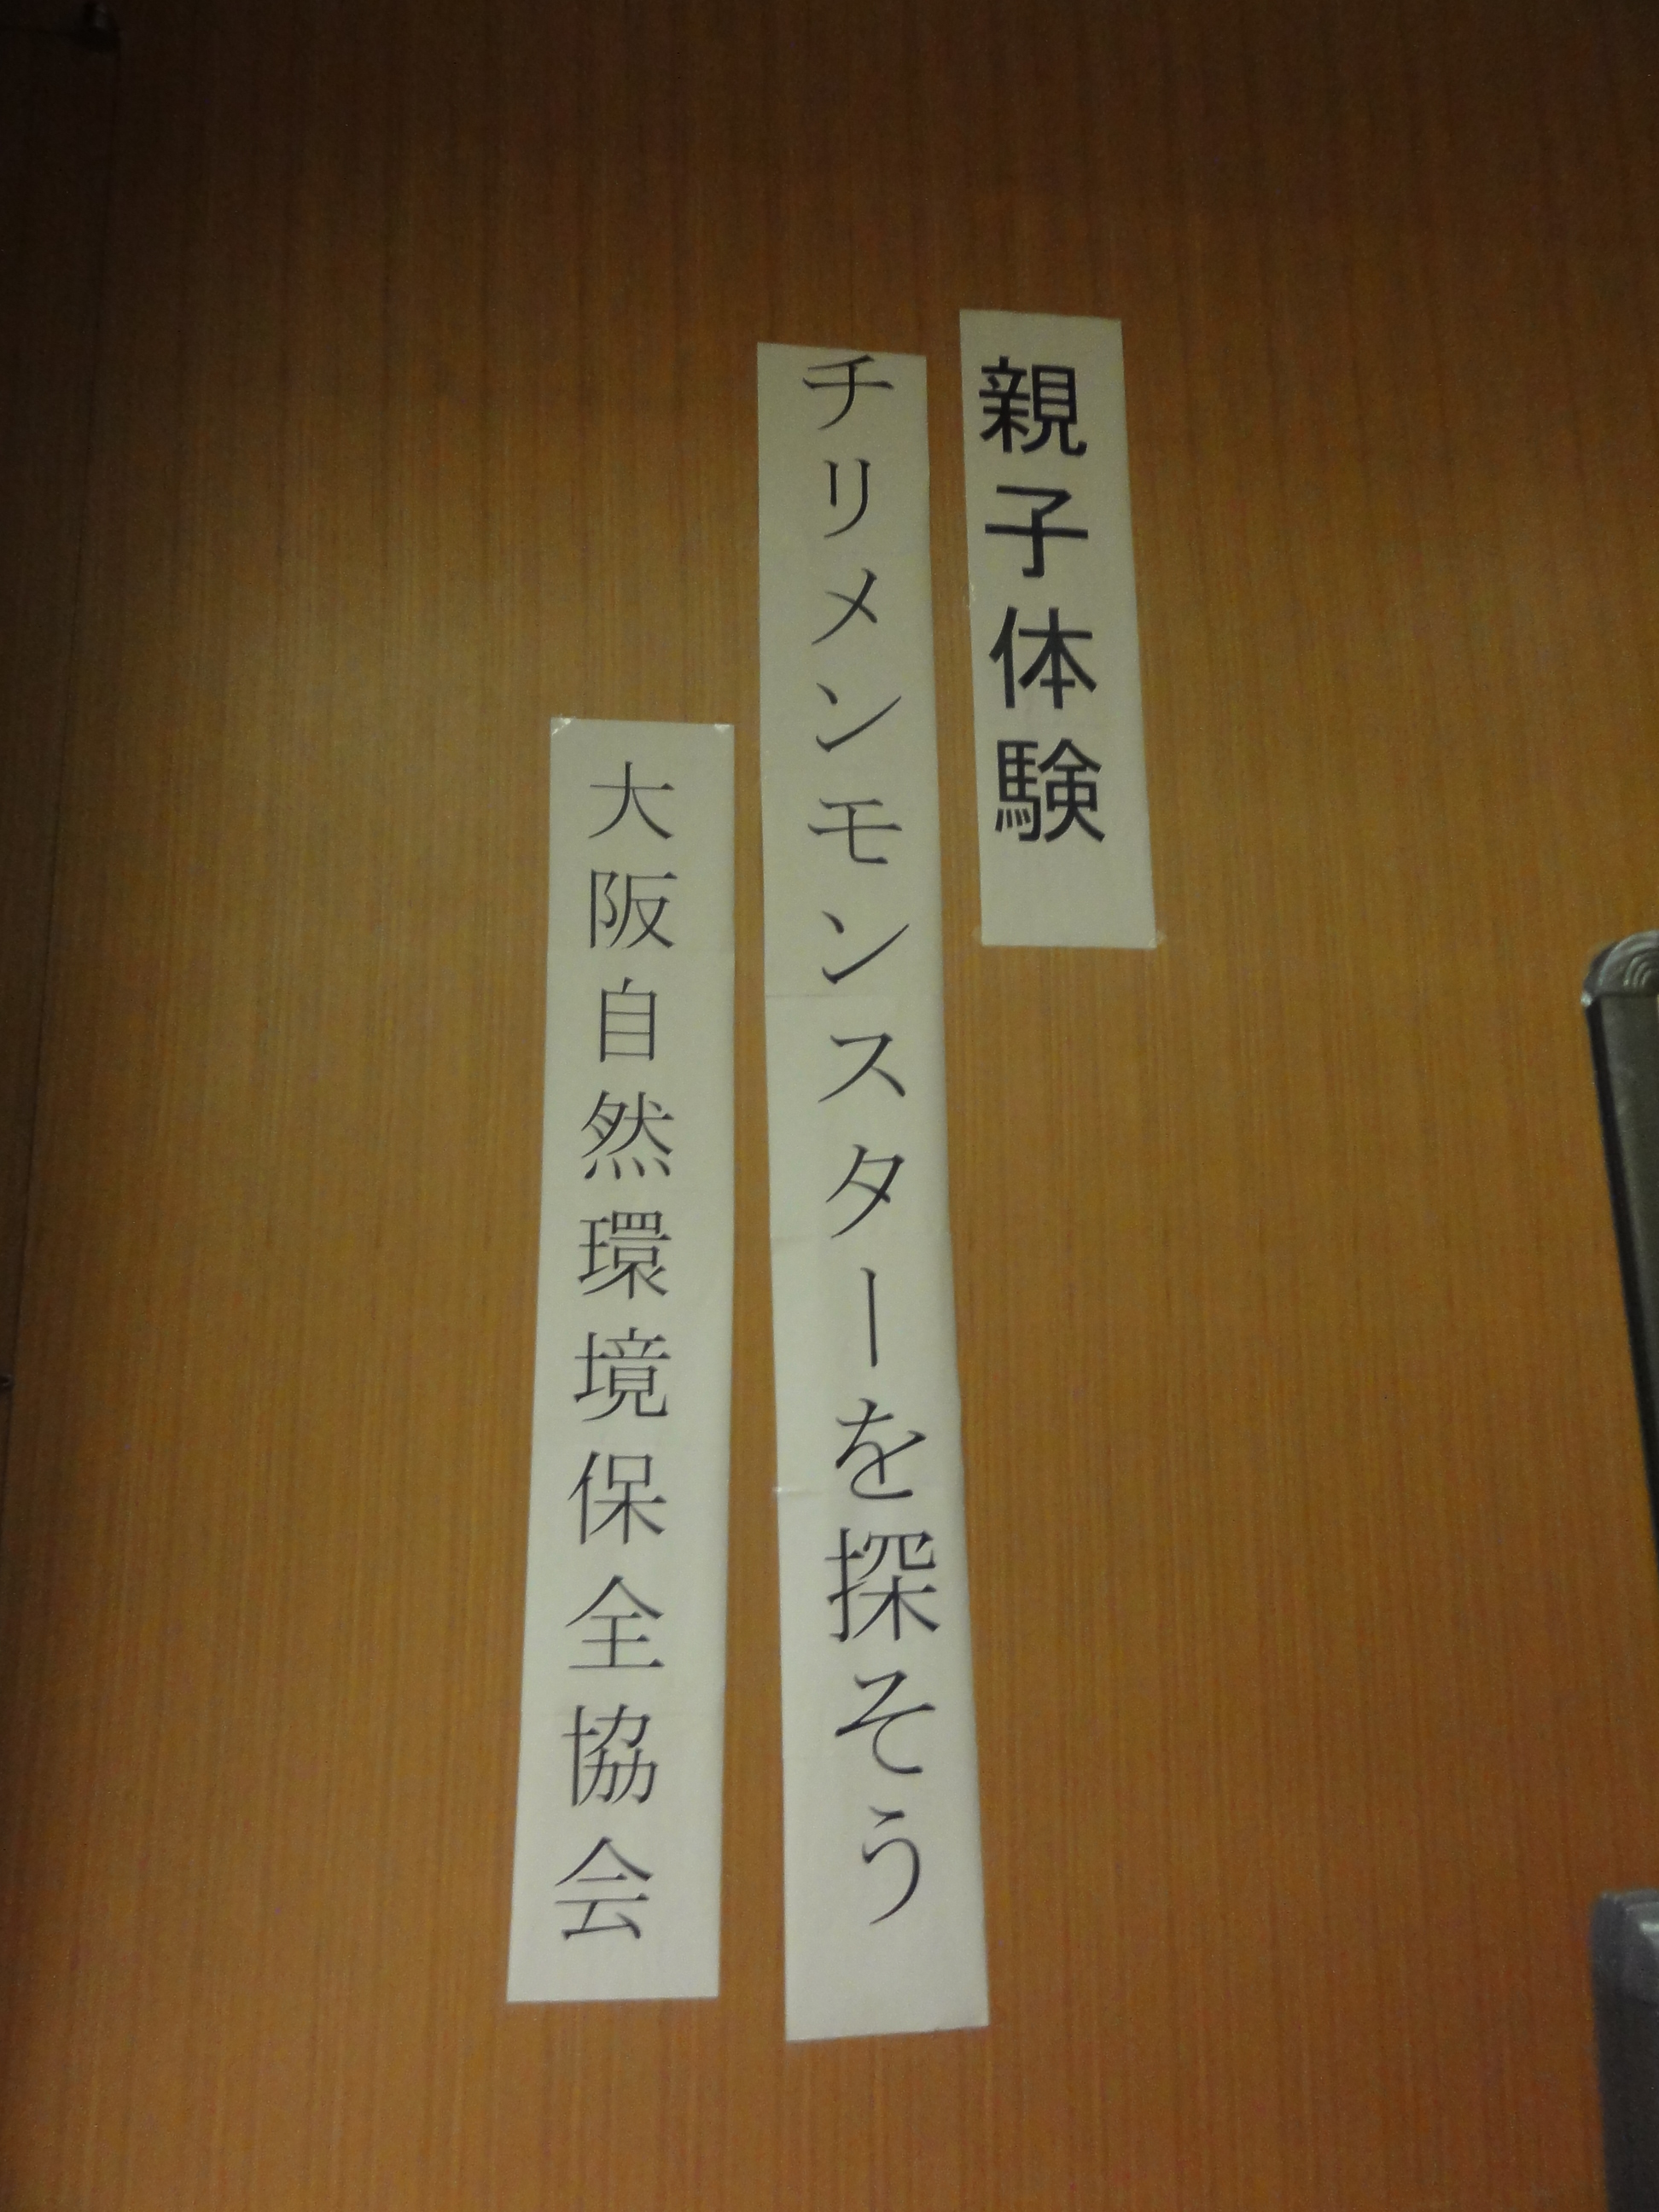 親子体験
チリメンモンスターを探そう
大阪自然環境保全協会